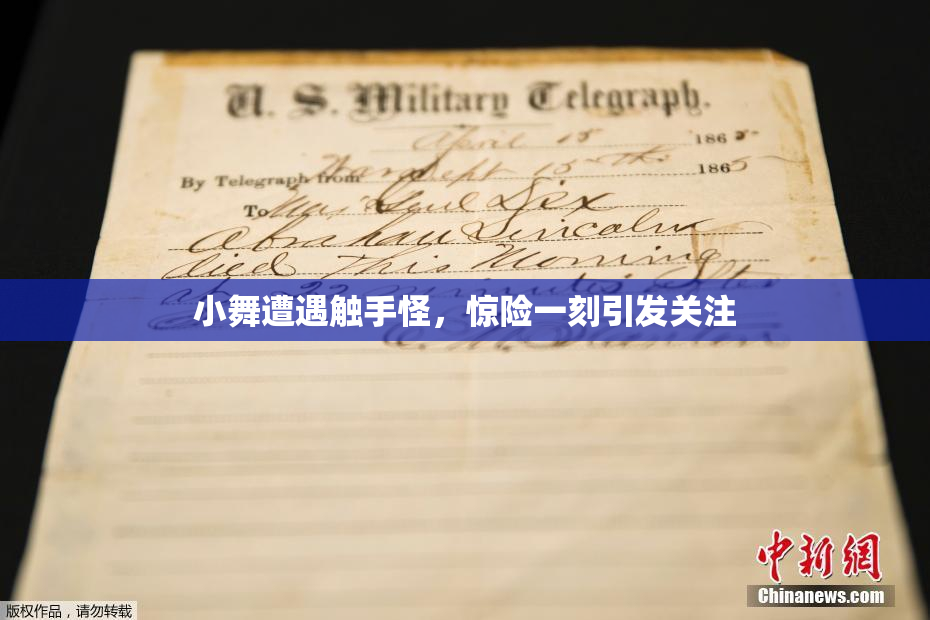 U. S. Military Telegraph.
April 15 1865
By Telegraph from War Dept 15th 1865
To Maj Genl Dix
Abraham Lincoln
died This Morning
at 22 minutes after
小舞遭遇触手怪，惊险一刻引发关注
E. M. Stanton
中新網
Chinanews.com
版权作品，请勿转载